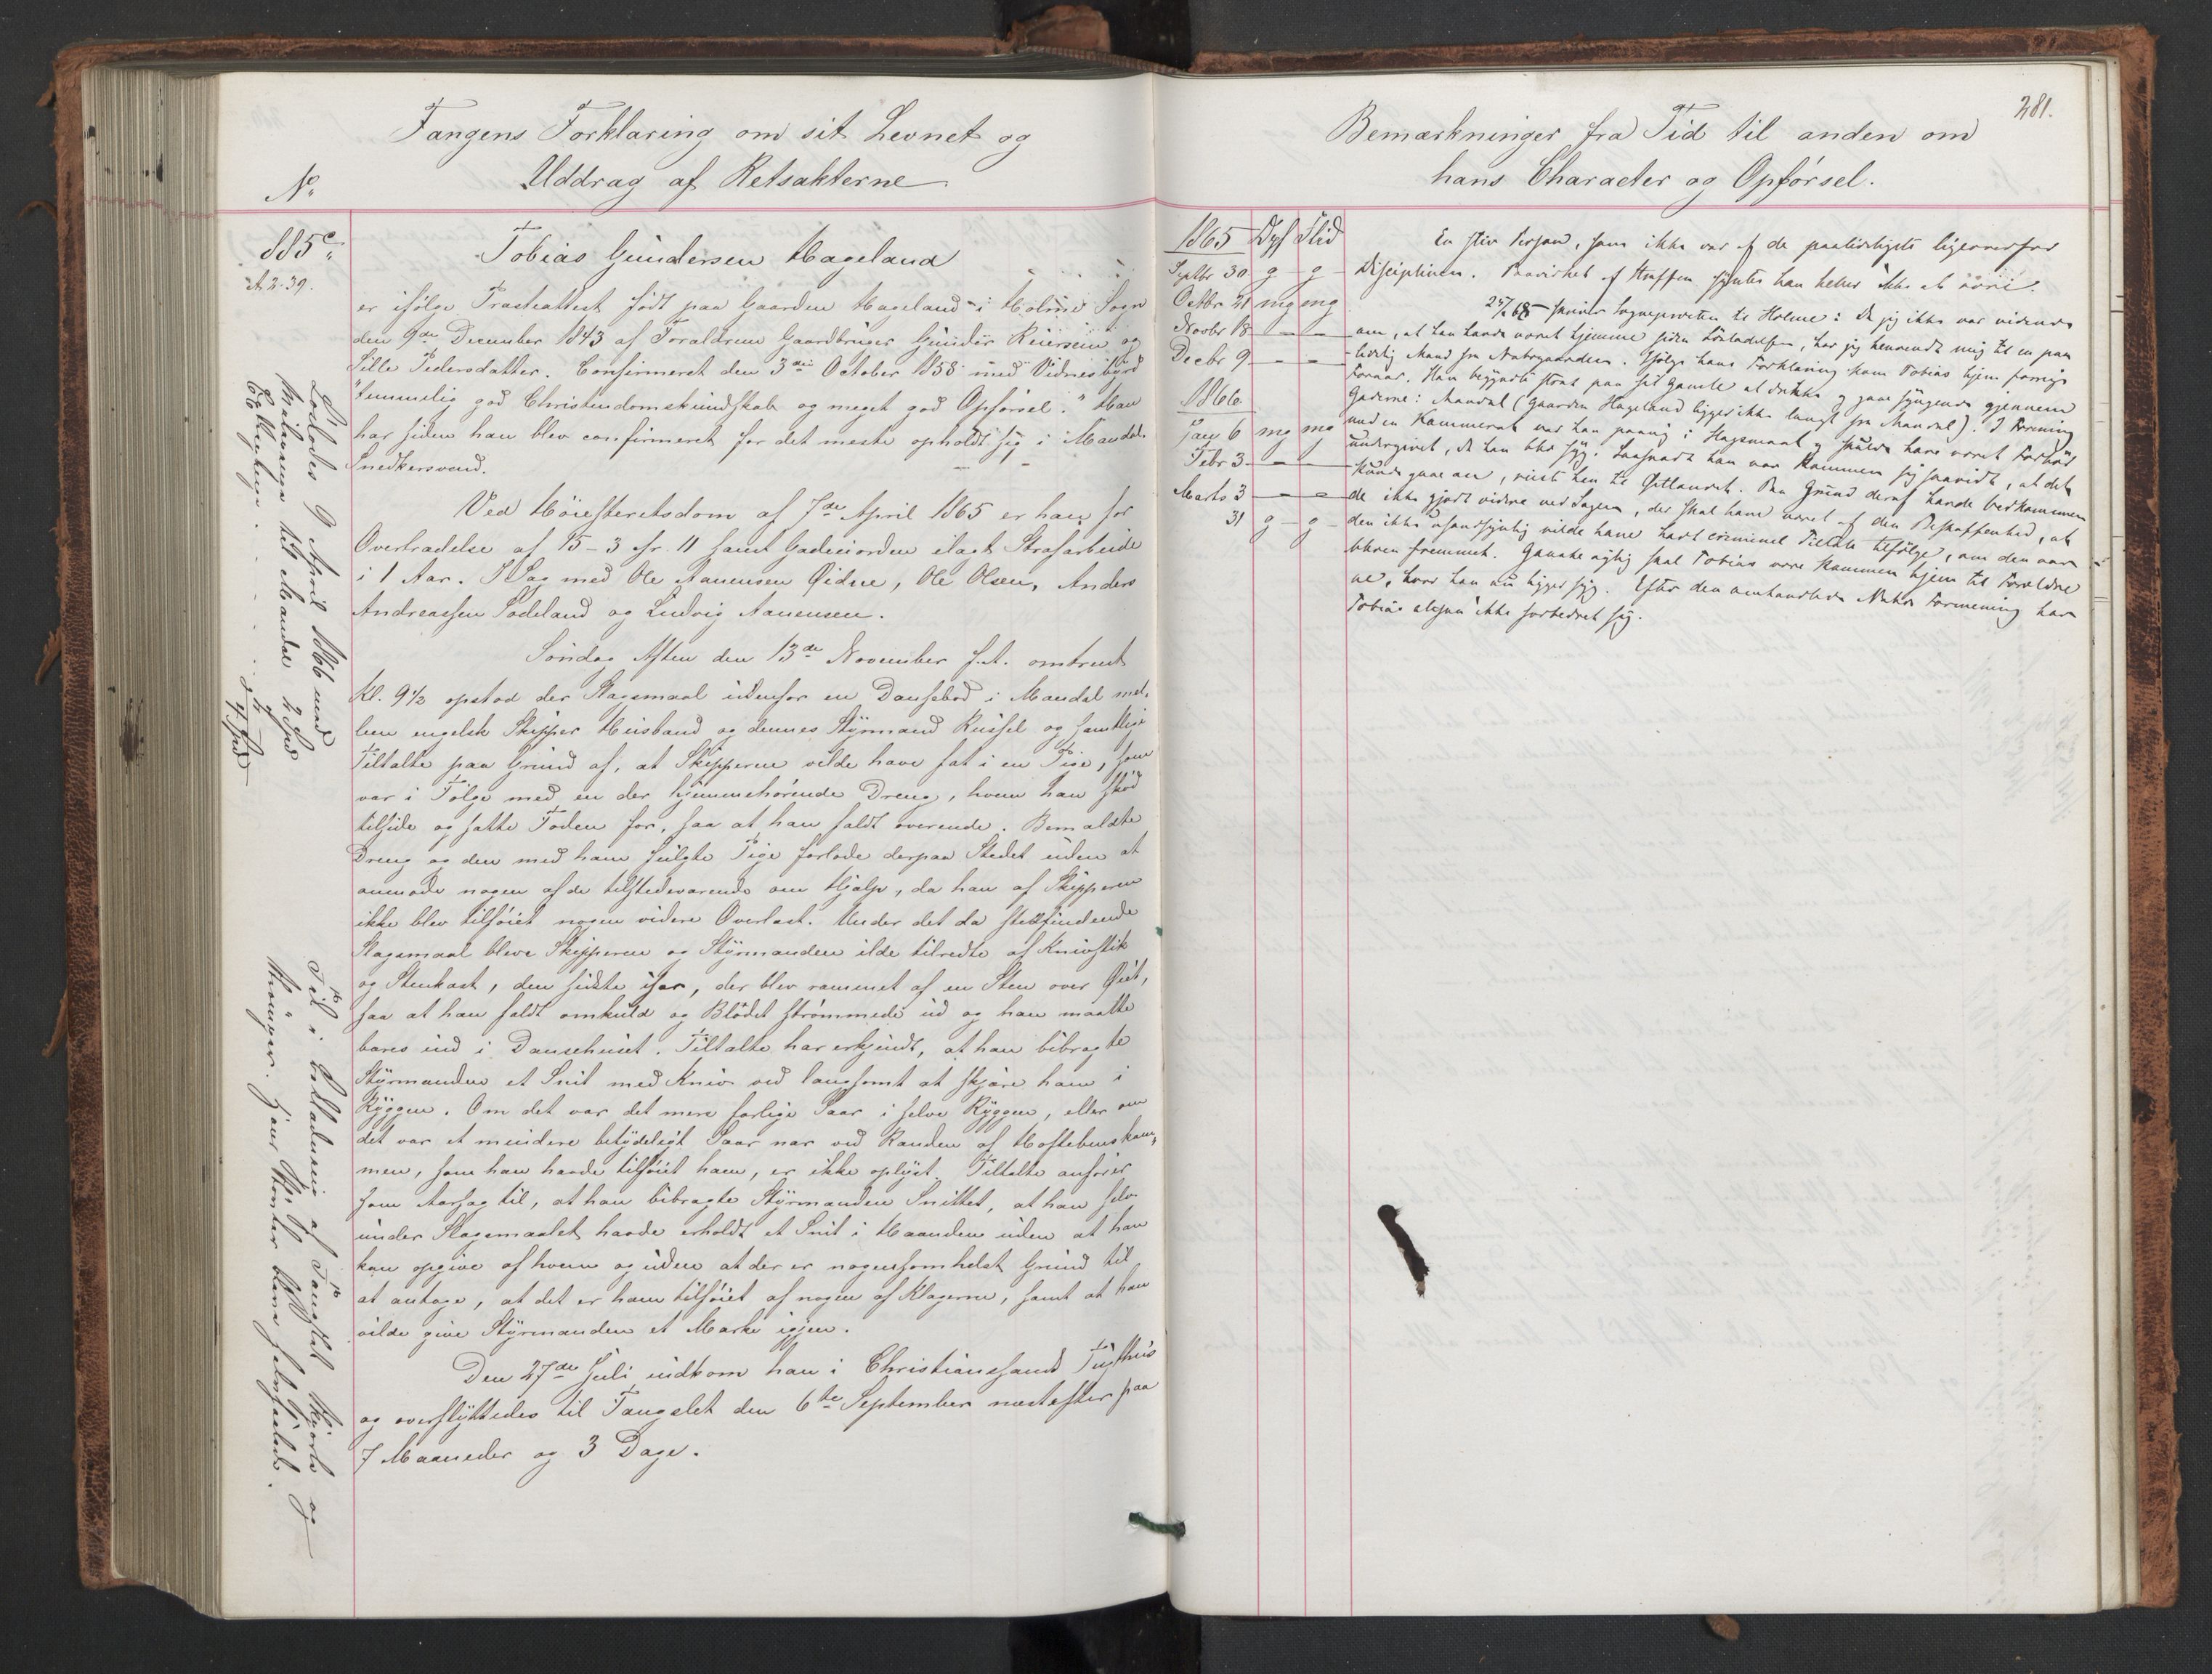 Fangens Forklaring om sit Levnet og
Uddrag af Retsakterne
No
885c
A. 2-39.
Tobias Gundersen Hageland
er ifølge Præsteattest født paa Gaarden Hageland i Holme Sogn
den 9de December 1843 af Forældrene Gaardbruger Gunder Reiersen og
Sille Pedersdatter. Confirmeret den 3die October 1858 med Vidnesbyrd
"temmelig god Christendomskundskab og meget god Opførsel." Han
har siden han blev confirmeret for det meste opholdt sig i Mandal.
Snedkersvend.
Ved Høiesteretsdom af 7de April 1865 er han for
Overtrædelse af 15-3 cfr. 11 samt Gadeuorden ilagt Strafarbeide
i 1 Aar. I Sag med Ole Aanensen Øidne, Ole Olsen, Anders
Andreassen Sodeland og Ludvig Aanensen.
Søndag Aften den 13de November f.A. omtrent
Kl. 9½ opstod der Slagsmaal udenfor en Dansebod i Mandal mel-
lem engelsk Skipper Husband og dennes Styrmand Russel og samtlige
Tiltalte paa Grund af, at Skipperen vilde have fat i en Pige, som
var i Følge med en der hjemmehørende Dreng, hvem han skød
tilside og satte Foden for, saa at han faldt overende. Bemældte
Dreng og den med ham fulgte Pige forlode derpaa Stedet uden at
anmode nogen af de tilstedeværende om Hjælp, da han af Skipperen
ikke blev tilføiet nogen videre Overlast. Under det da stedfindende
Slagsmaal bleve Skipperen og Styrmanden ilde tilredte af Knivstik
og Stenkast, den sidste især, der blev rammet af en Sten over Øiet,
saa at han faldt omkuld og Blodet strømmede ud og han maatte
bæres ind i Dansehuset. Tiltalte har erkjendt, at han bibragte
Styrmanden et Snit med Kniv ved langsomt at skjære ham i
Ryggen. Om det var det mere farlige Saar i selve Ryggen, eller om
det var et mindre betydeligt Saar nær ved Randen af Hoftebenskam-
men, som han havde tilføiet ham, er ikke oplyst. Tiltalte anfører
som Aarsag til, at han bibragte Styrmanden Snittet, at han selv
under Slagsmaalet havde erholdt et Snit i Haanden uden at han
kan opgive af hvem og uden at der er nogensomhelst Grund til
at antage, at det er ham tilføiet af nogen af Klagerne, samt at han
vilde give Styrmanden et Mærke igjen.
Den 27de Juli indkom han i Christianssands Tugthus
og overflyttedes til Fangslet den 6te September næstefter paa
7 Maaneder og 3 Dage.
Løslodes 9 April 1866 med
Milepenge til Mandal 2 Spd
Til i Løsladning af Fangslet Skjorte og
Strømper.
281.
Bemærkninger fra Tid til anden om
hans Character og Opførsel.
1865 Opf Flid
Septbr 30 g - g
Octbr 21 mg mg
Novbr 18 — —
Decbr 9 — —
1866
Jan 6 mg mg
Febr 3 — —
Marts 3 — —
31 g - g
En stiv Person, som ikke var af de paalideligste ligeoverfor
Disciplinen. Paavirket af Straffen syntes han heller ikke at være.
skriver Sognepresten til Holme: Da jeg ikke var vidende
om, at han havde været hjemme siden Løsladelsen, har jeg henvendt mig til en paa-
lidelig Mand fra Nabogaarden. Ifølge hans Forklaring kom Tobias hjem forrige
Foraar. Han begyndte strax paa sit gamle at drikke og gaae syngende gjennem
Gaderne i Mandal (Gaarden Hageland ligger ikke langt fra Mandal). I Forening
med en Kammerat var han paany i Slagsmaal og skulde have været Forhør
undergivet, da han blev syg. Saasnart han var kommen sig saavidt, at det
kunde gaae an, reiste han til Østlandet. Paa Grund deraf havde Vedkommende
ikke gjort videre ved Sagen, der skal have været af den Beskaffenhed, at
den ikke usandsynlig vilde have havt criminel Tiltale tilfølge, om den var
bleven fremmet. Ganske nylig skal Tobias være kommen hjem til Forældre-
ne, hvor han nu ligger syg. Efter den omhandlede Mands Formening har
Tobias altsaa ikke forbedret sig.